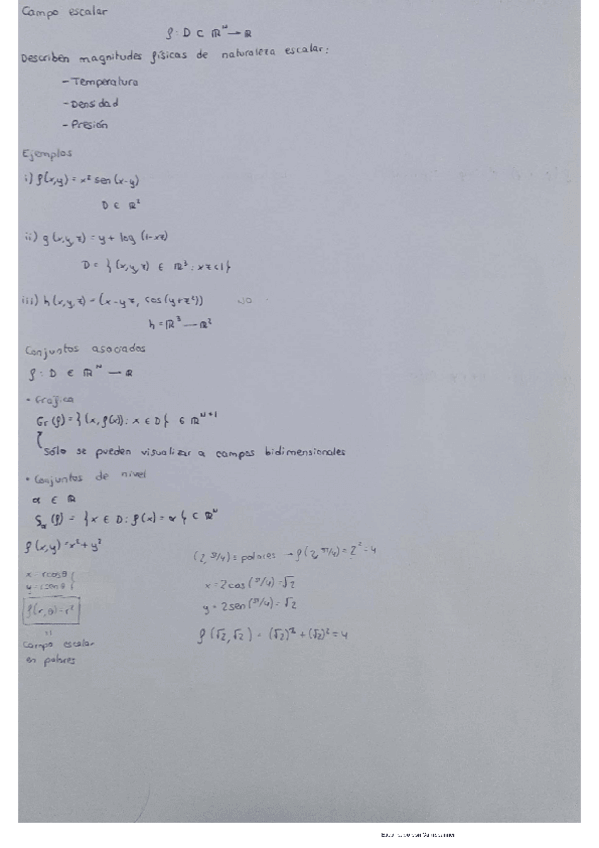 Campo escalar
f: D ⊂ ℝᴺ → ℝ
Describen magnitudes físicas de naturaleza escalar:
- Temperatura
- Densidad
- Presión
Ejemplos
i) f(x,y) = x² sen(x-y)
D ∈ ℝ²
ii) g(x,y,z) = y + log(1-xz)
D = {(x,y,z) ∈ ℝ³ : xz<1}
iii) h(x,y,z) = (x-yz, cos(y+z²)) NO
h = ℝ³ → ℝ²
Conjuntos asociados
f: D ∈ ℝᴺ → ℝ
• Gráfica
Gr(f) = {(x, f(x)) : x ∈ D} ∈ ℝᴺ⁺¹
Sólo se pueden visualizar a campos bidimensionales
• Conjuntos de nivel
α ∈ ℝ
Sα(f) = {x ∈ D : f(x) = α} ⊂ ℝᴺ
f(x,y) = x² + y²
x = r cos θ
y = r sen θ
f(r,θ) = r²
Campo escalar
en polares
(2, π/4) = polares → f(2, π/4) = 2² = 4
x = 2cos(π/4) = √2
y = 2sen(π/4) = √2
f(√2, √2) = (√2)² + (√2)² = 4